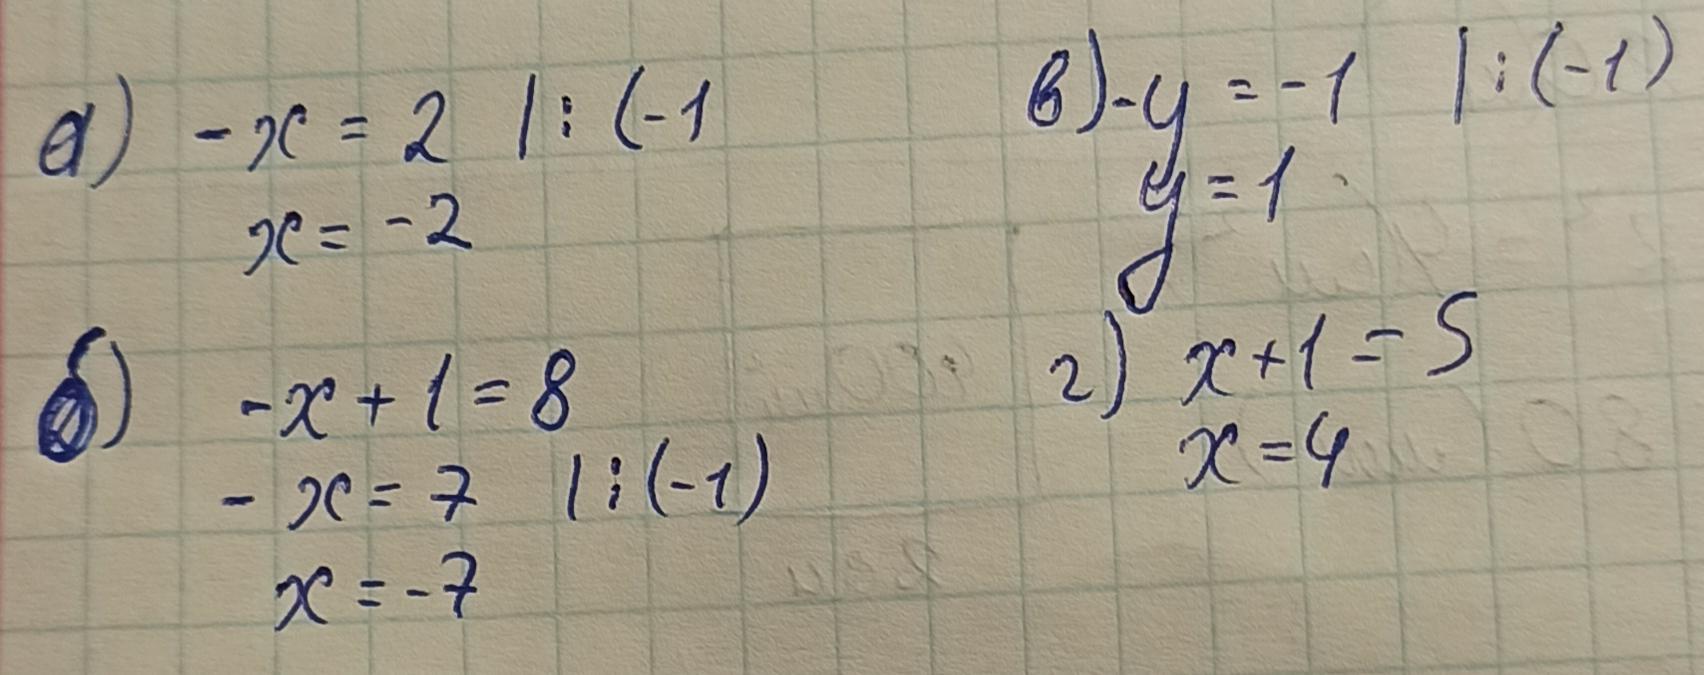 а) -x = 2 | : (-1
x = -2
б) -x + 1 = 8
- x = 7 | : (-1)
x = -7
в) -y = -1 | : (-1)
y = 1
г) x + 1 = 5
x = 4